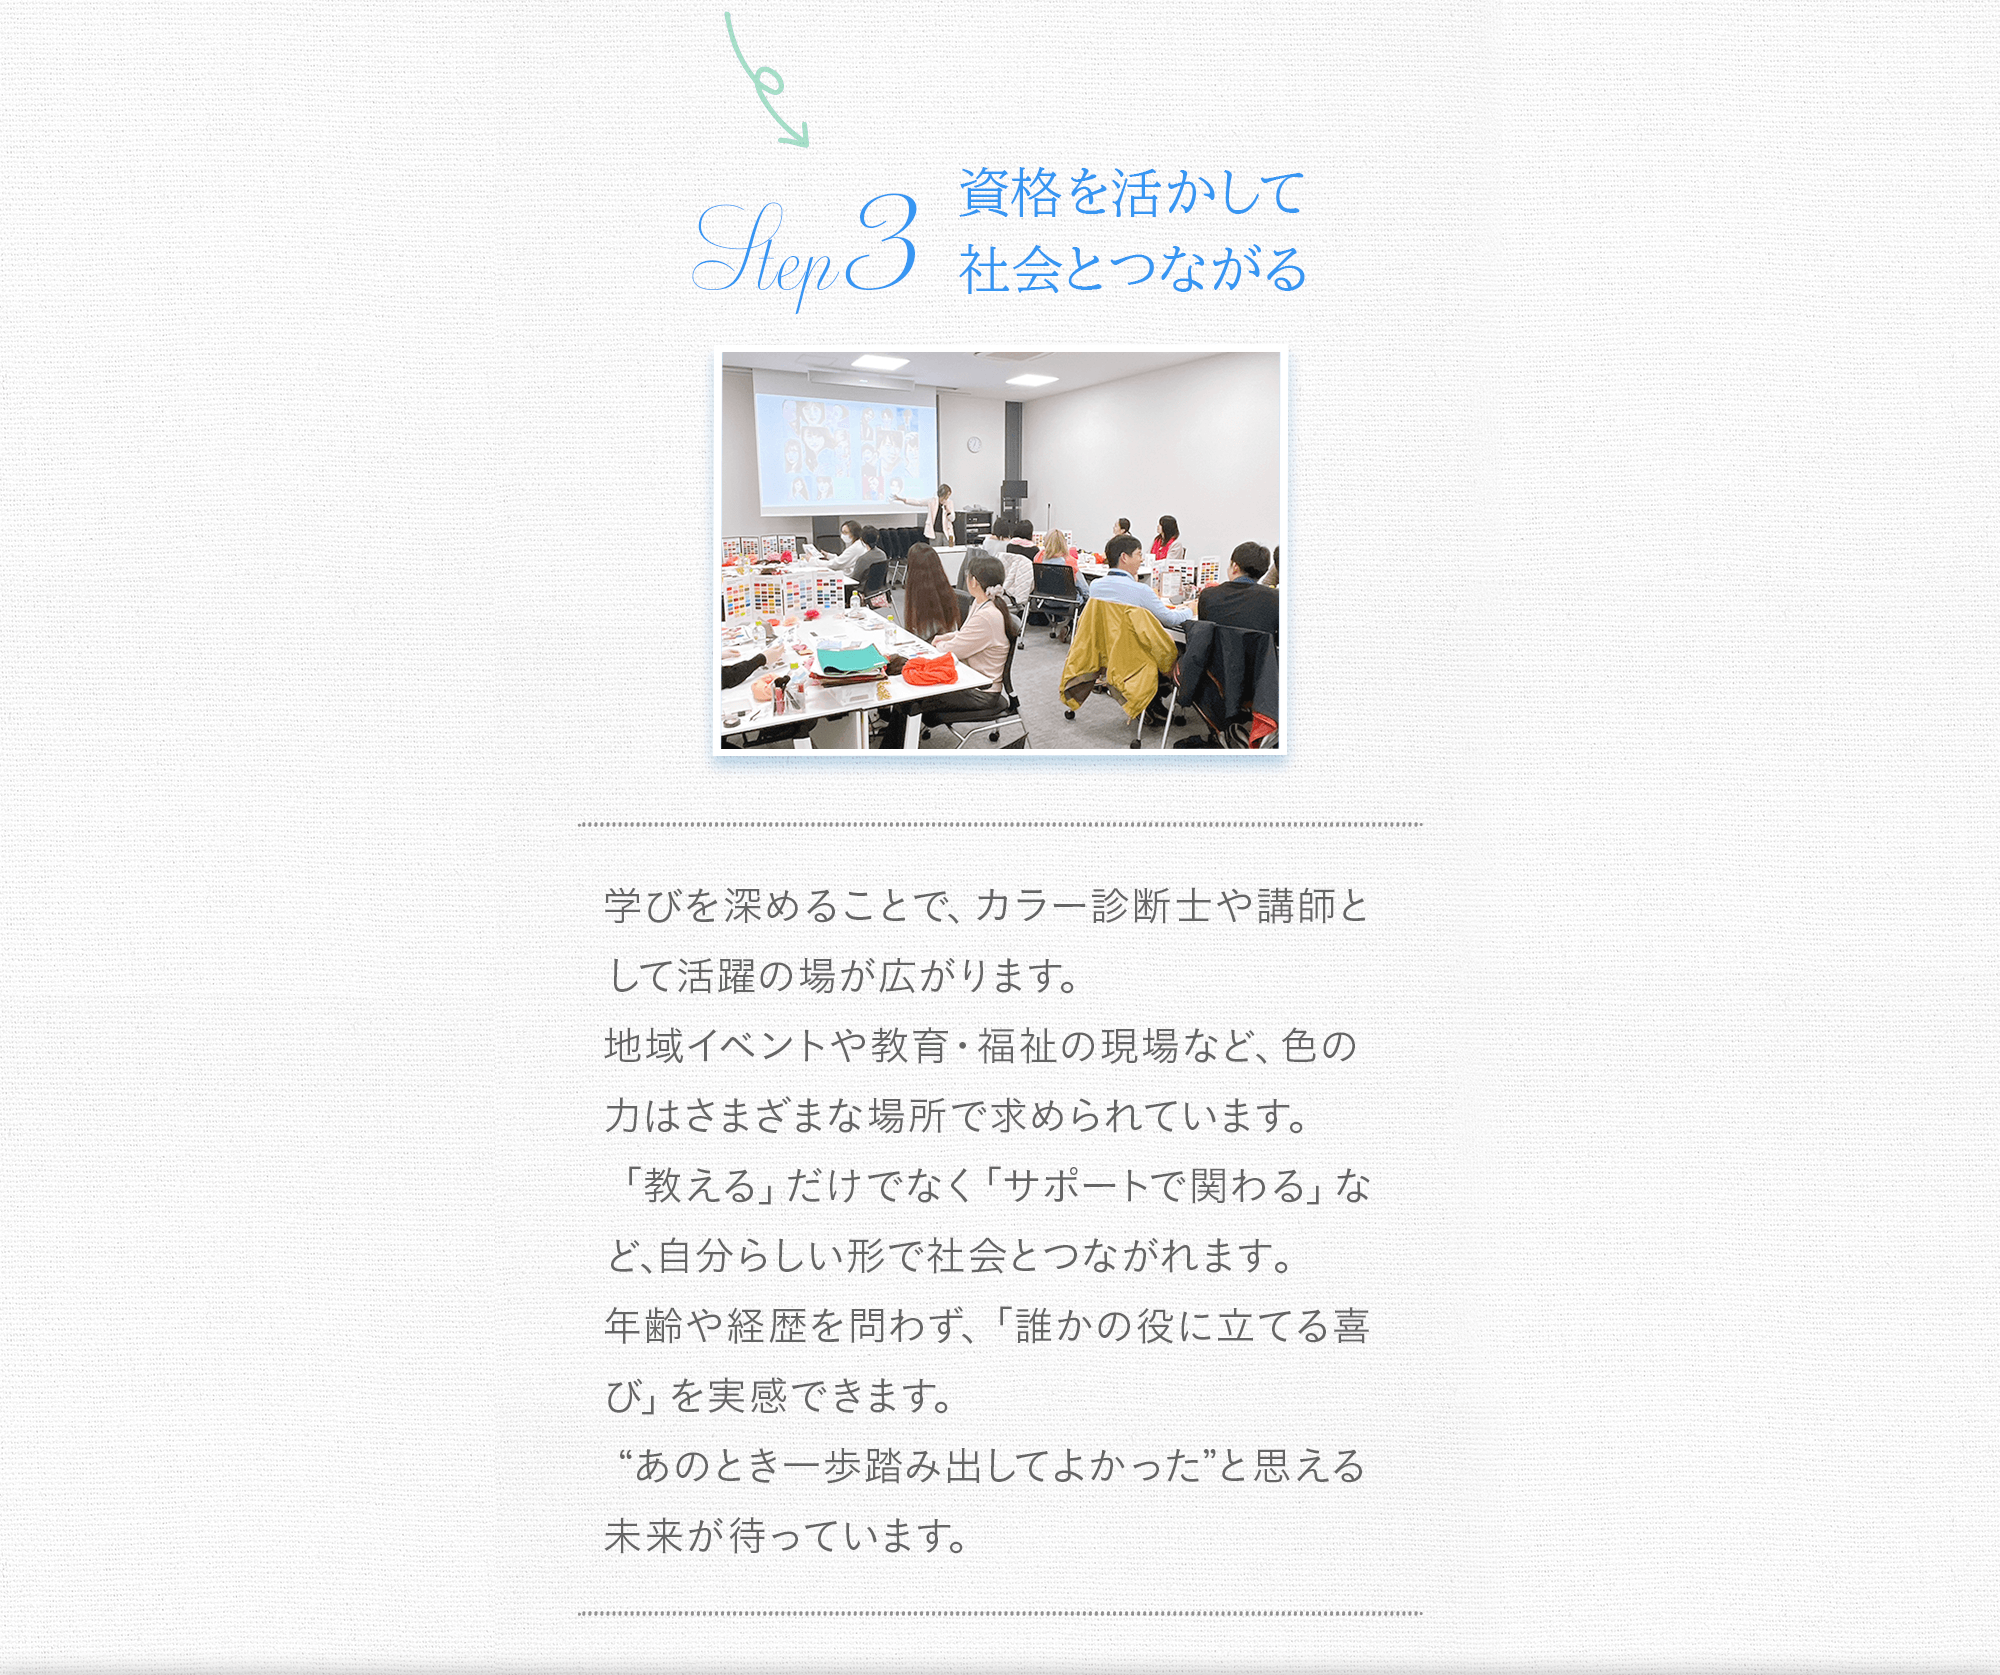 Step3
資格を活かして
社会とつながる
学びを深めることで、カラー診断士や講師と
して活躍の場が広がります。
地域イベントや教育・福祉の現場など、色の
力はさまざまな場所で求められています。
「教える」だけでなく「サポートで関わる」な
ど、自分らしい形で社会とつながれます。
年齢や経歴を問わず、「誰かの役に立てる喜
び」を実感できます。
“あのとき一歩踏み出してよかった”と思える
未来が待っています。